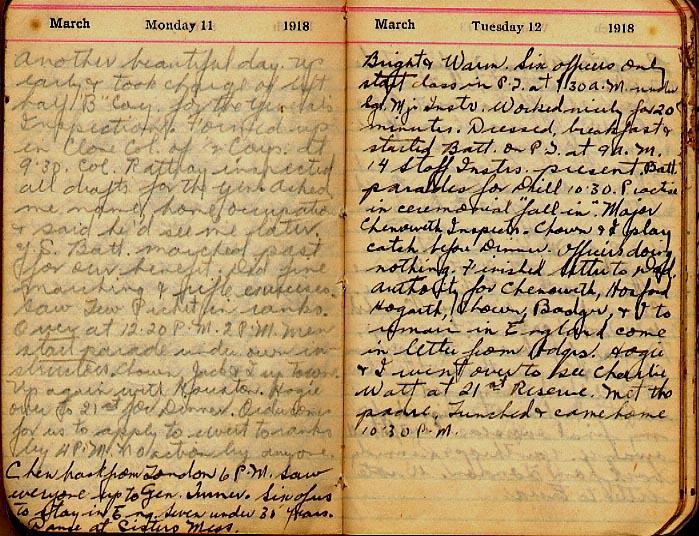 March Monday 11 1918
Another beautiful day. Up
early & took charge of left
half "B" Coy. for the Generals
Inspection. Formed up
in Close Col. of Coys. at
9.30. Col. Rattray inspected
all drafts for the Gen. asked
me name, home, occupation
& said he'd see me later.
Batt. marched past
for our benefit. Did fine
marching & rifle exercises.
Saw Lew in ranks.
Over at 12.20 P.M. 2 P.M. men
start parade under own in-
structors. Chown, & I up town.
Up again with Houston. Hogie
over to 21st for Dinner. Order comes
for us to apply to revert to ranks
by 4 P.M. No action by anyone.
Chen back from London 6 P.M. Saw
everyone up to Gen. Turner. Six of us
to stay in Eng. Seven under 30 years.
Dance at Sisters Mess.
March Tuesday 12 1918
Bright & Warm. Six officers only
staff class in P.T. at 7.30 A.M. under
Sgt. Mj. Instr. Worked nicely for 20
minutes. Dressed, breakfast &
started Batt. on P.T. at 9 A.M.
14 Staff Instrs. present. Batt.
parades for Drill 10.30. Practice
in ceremonial "fall in". Major
Chenowith Inspects. Chown & I play
catch before Dinner. Officers doing
nothing. Finished letter to Dad.
authority for Chenowith, Hosford
Hogarth, Chown, Badger, & I to
remain in England come
in letter from Hdqrs. Hogie
& I went over to see Charlie
Watt at 21st Reserve. Met the
padre, Lunched & came home
10.30 P.M.